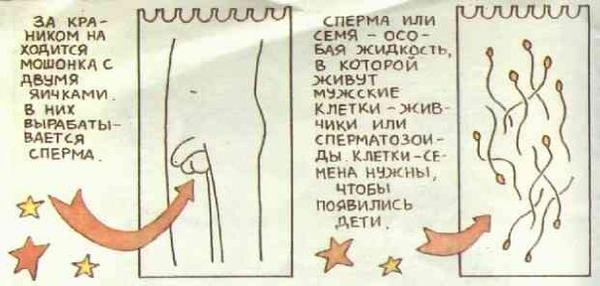 ЗА КРА-
НИКОМ НА
ХОДИТСЯ
МОШОНКА С
ДВУМЯ
ЯИЧКАМИ.
В НИХ
ВЫРАБАТЫ-
ВАЕТСЯ
СПЕРМА.
СПЕРМА ИЛИ
СЕМЯ – ОСО-
БАЯ ЖИДКОСТЬ,
В КОТОРОЙ
ЖИВУТ
МУЖСКИЕ
КЛЕТКИ – ЖИВ-
ЧИКИ ИЛИ
СПЕРМАТОЗОИ-
ДЫ. КЛЕТКИ-СЕ-
МЕНА НУЖНЫ,
ЧТОБЫ
ПОЯВИЛИСЬ
ДЕТИ.